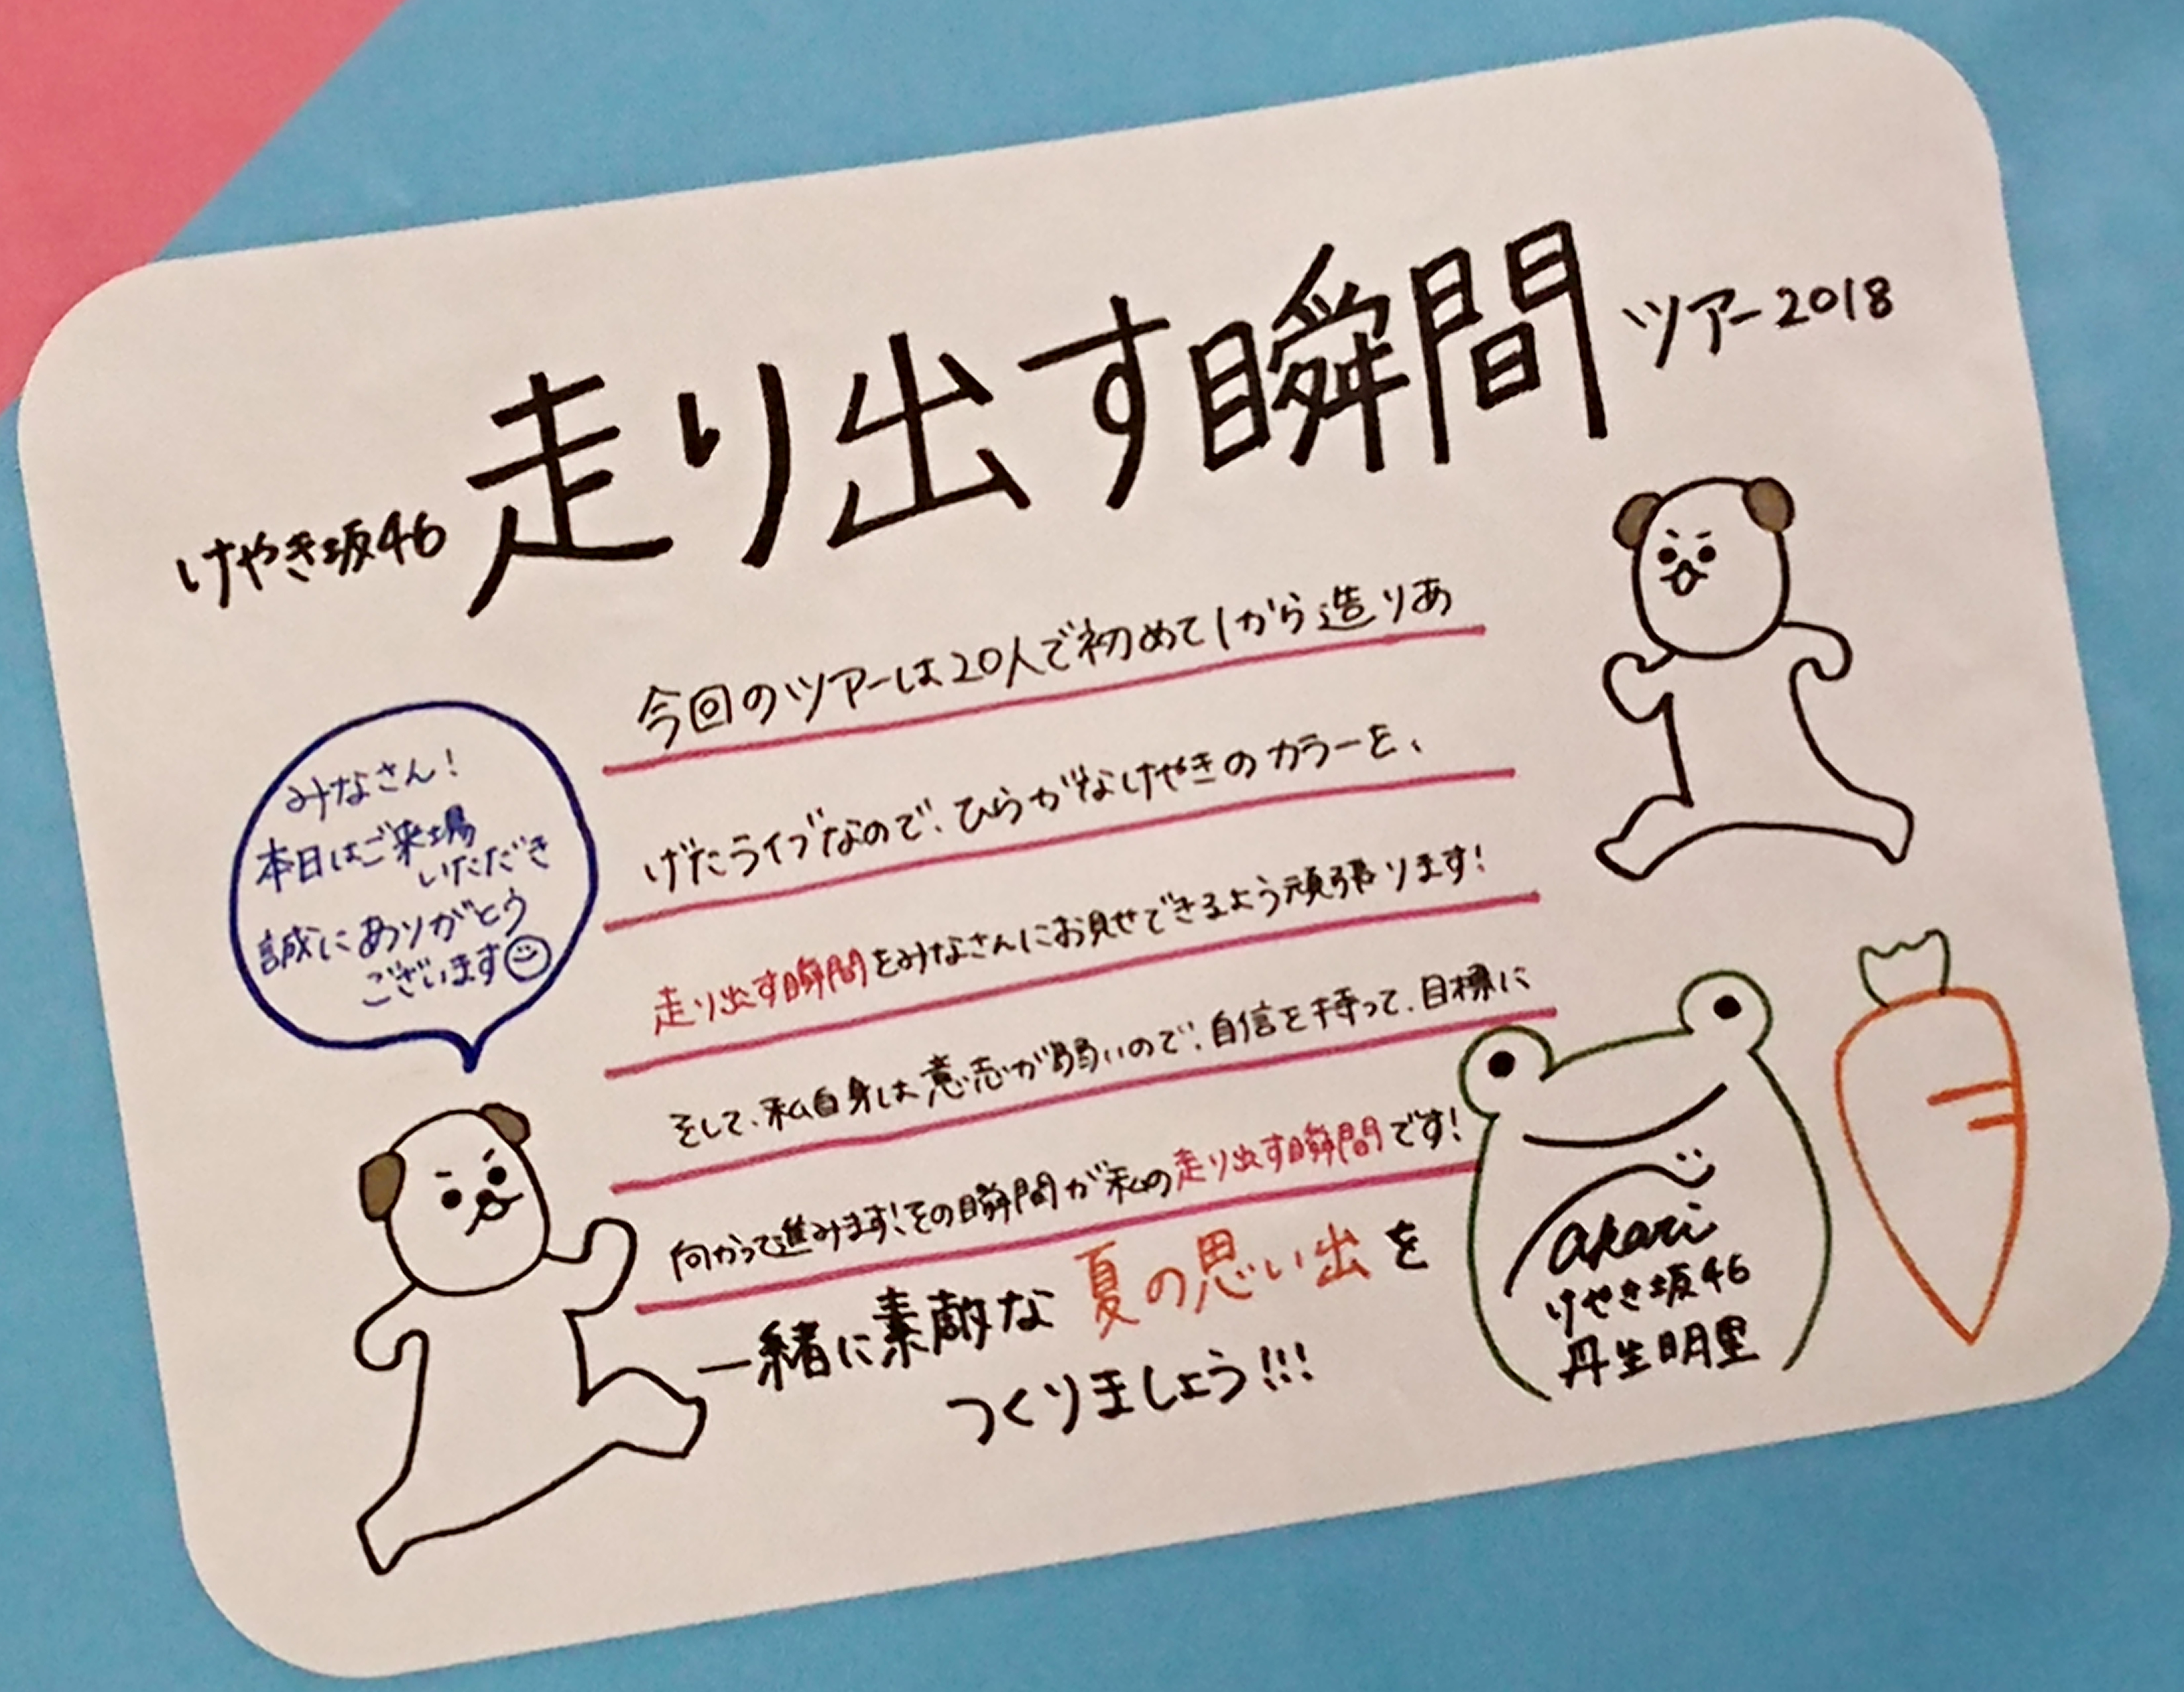 けやき坂46 走り出す瞬間 ツアー2018
みなさん!
本日はご来場
いただき
誠にありがとう
ございます
今回のツアーは20人で初めて1から造りあ
げたライブなので、ひらがなけやきのカラーを、
走り出す瞬間をみなさんにお見せできるよう頑張ります!
そして、私自身は意志が弱いので、自信を持って、目標に
向かって進みます!その瞬間が私の走り出す瞬間です!
一緒に素敵な夏の思い出を
つくりましょう!!!
akari
けやき坂46
丹生明里